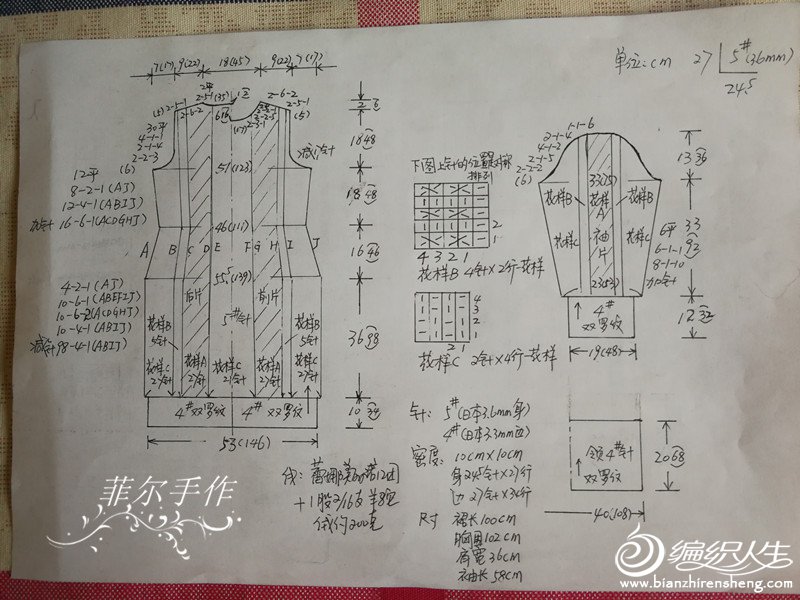 7(17) 9(22) 18(45) 9(22) 7(17)
单位:cm 27 5#(3.6mm)
24.5
2平
2-5-1 (35)
2-6-2
2-6-2
2-5-1
(5)
(5)
30平
4-1-1
2-1-4
2-2-3
(6)
(17)
2-3-1
减针
2 6
18 48
18 48
16 46
36 98
10 34
12平
8-2-1(AJ)
12-4-1(ABIJ)
加针 16-6-1(ACDGHJ)
51(123)
46(111)
A B C D E F G H I J
55.5(139)
4-2-1(AJ)
10-6-1(ABEFIJ)
10-6-2(ACDGHJ)
10-4-1(ABIJ)
减针 98-4-1(ABIJ)
后片 前片
5#针
花样B 5针
花样C 21针
花样A 21针
花样C 21针
花样A 21针
花样B 5针
花样C 21针
4#双罗纹 4#双罗纹
53(146)
下图上针的位置是挪排列
2
1
4 3 2 1
花样B 4针×2行一花样
4
3
2
1
2 1
花样C 2针×4行一花样
1-1-6
2-1-4
4-1-2
2-1-5
2-2-2
(6)
33(75)
花样B 花样A 花样B
花样C 袖片 花样C
23(53)
6平
6-1-1
8-1-10
加针
4#
双罗纹
19(48)
13 36
33 92
12 32
针: 5#(日本3.6mm身)
4#(日本3.3mm边)
密度: 10cm×10cm
身24.5针×27行
边27针×34行
尺寸 裙长100cm
胸围102cm
肩宽36cm
袖长58cm
领4#针
双罗纹
20 68
40(108)
+1股2/16支羊绒
线约200克
菲尔手作
编织人生
www.bianzhirensheng.com